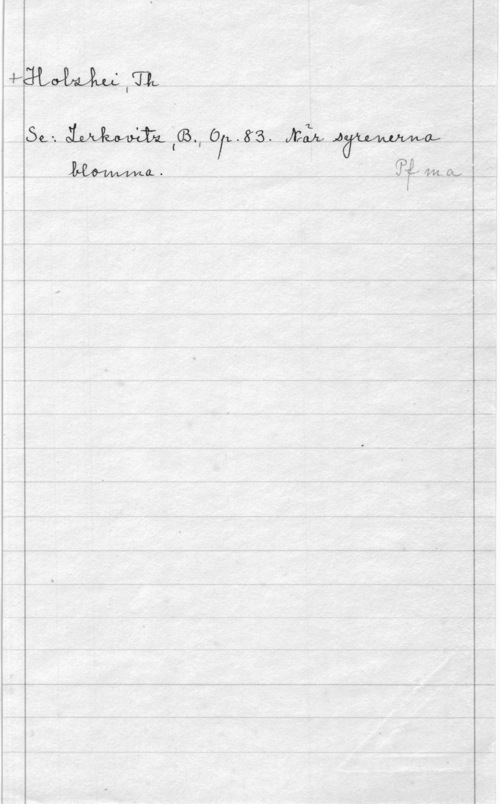 +Holzhei, Th
Se: Zerkovitz, B., Op. 83. När syrenerna
blomma. Pf ma